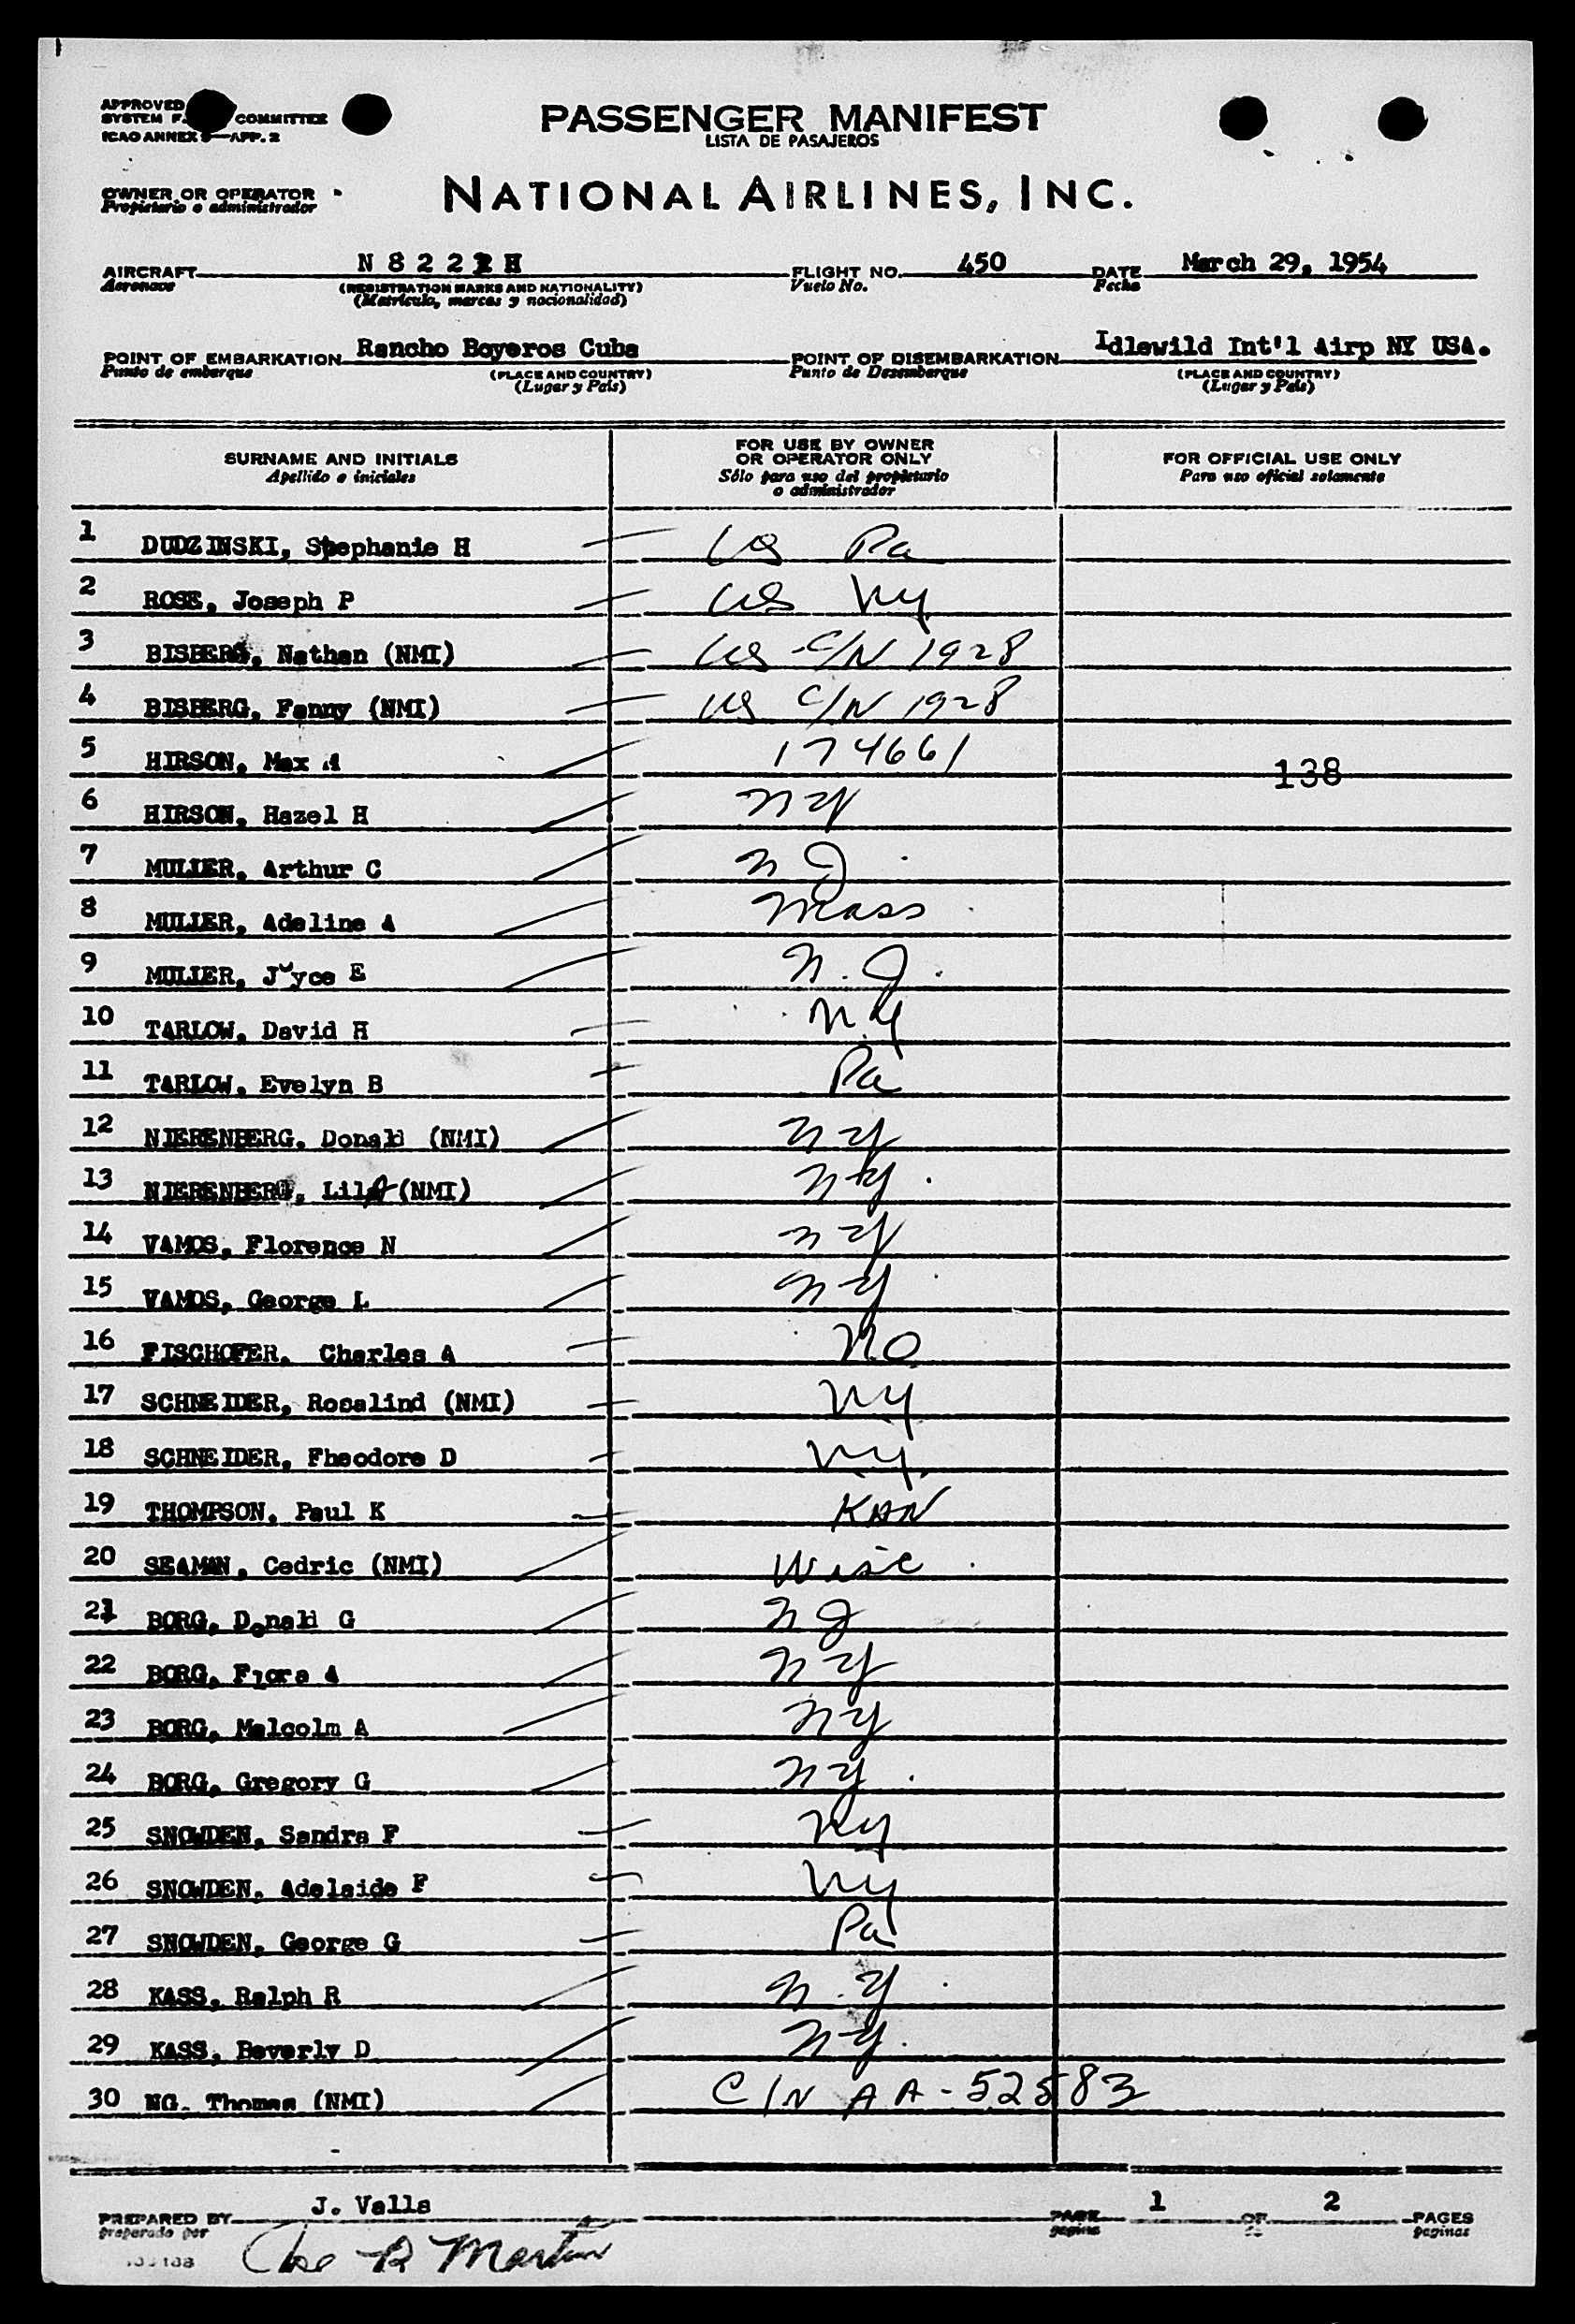 APPROVED
SYSTEM COMMITTEE
ICAO ANNEX 9—APP. 2
PASSENGER MANIFEST
LISTA DE PASAJEROS
OWNER OR OPERATOR
Propietario o administrador
NATIONAL AIRLINES, INC.
AIRCRAFT N 8 2 2 2 H FLIGHT NO. 450 DATE March 29, 1954
Aeronave (REGISTRATION MARKS AND NATIONALITY) Vuelo No. Fecha
(Matrícula, marcas y nacionalidad)
POINT OF EMBARKATION Rancho Boyeros Cuba POINT OF DISEMBARKATION Idlewild Int'l Airp NY USA.
Punto de embarque (PLACE AND COUNTRY) Punto de Desembarque (PLACE AND COUNTRY)
(Lugar y País) (Lugar y País)
SURNAME AND INITIALS
Apellido e iniciales
FOR USE BY OWNER
OR OPERATOR ONLY
Sólo para uso del propietario
o administrador
FOR OFFICIAL USE ONLY
Para uso oficial solamente
1 DUDZINSKI, Stephanie H US Pa
2 ROSE, Joseph P US NY
3 BISBERG, Nathan (NMI) US C/N 1928
4 BISBERG, Fanny (NMI) US C/N 1928
5 HIRSON, Max A 174661 138
6 HIRSON, Hazel H NY
7 MULLER, Arthur C N J
8 MULLER, Adeline A Mass
9 MULLER, Joyce E N. J.
10 TARLOW, David H N.Y
11 TARLOW, Evelyn B Pa
12 NIERENBERG, Donald (NMI) NY
13 NIERENBERG, Lila (NMI) NY.
14 VAMOS, Florence N NY
15 VAMOS, George L NY
16 FISCHOFER, Charles A N.O.
17 SCHNEIDER, Rosalind (NMI) NY
18 SCHNEIDER, Fheodore D NY.
19 THOMPSON, Paul K KAN
20 SEAMAN, Cedric (NMI) Wisc.
21 BORG, Donald G NJ
22 BORG, Flora A NY
23 BORG, Malcolm A NY
24 BORG, Gregory G NY.
25 SNOWDEN, Sandra F NY
26 SNOWDEN, Adelaide F NY
27 SNOWDEN, George G Pa
28 KASS, Ralph R N.Y.
29 KASS, Beverly D NY.
30 NG. Thomas (NMI) C/N AA-52583
PREPARED BY J. Valls PAGE 1 OF 2 PAGES
preparado por pagina paginas
Martin